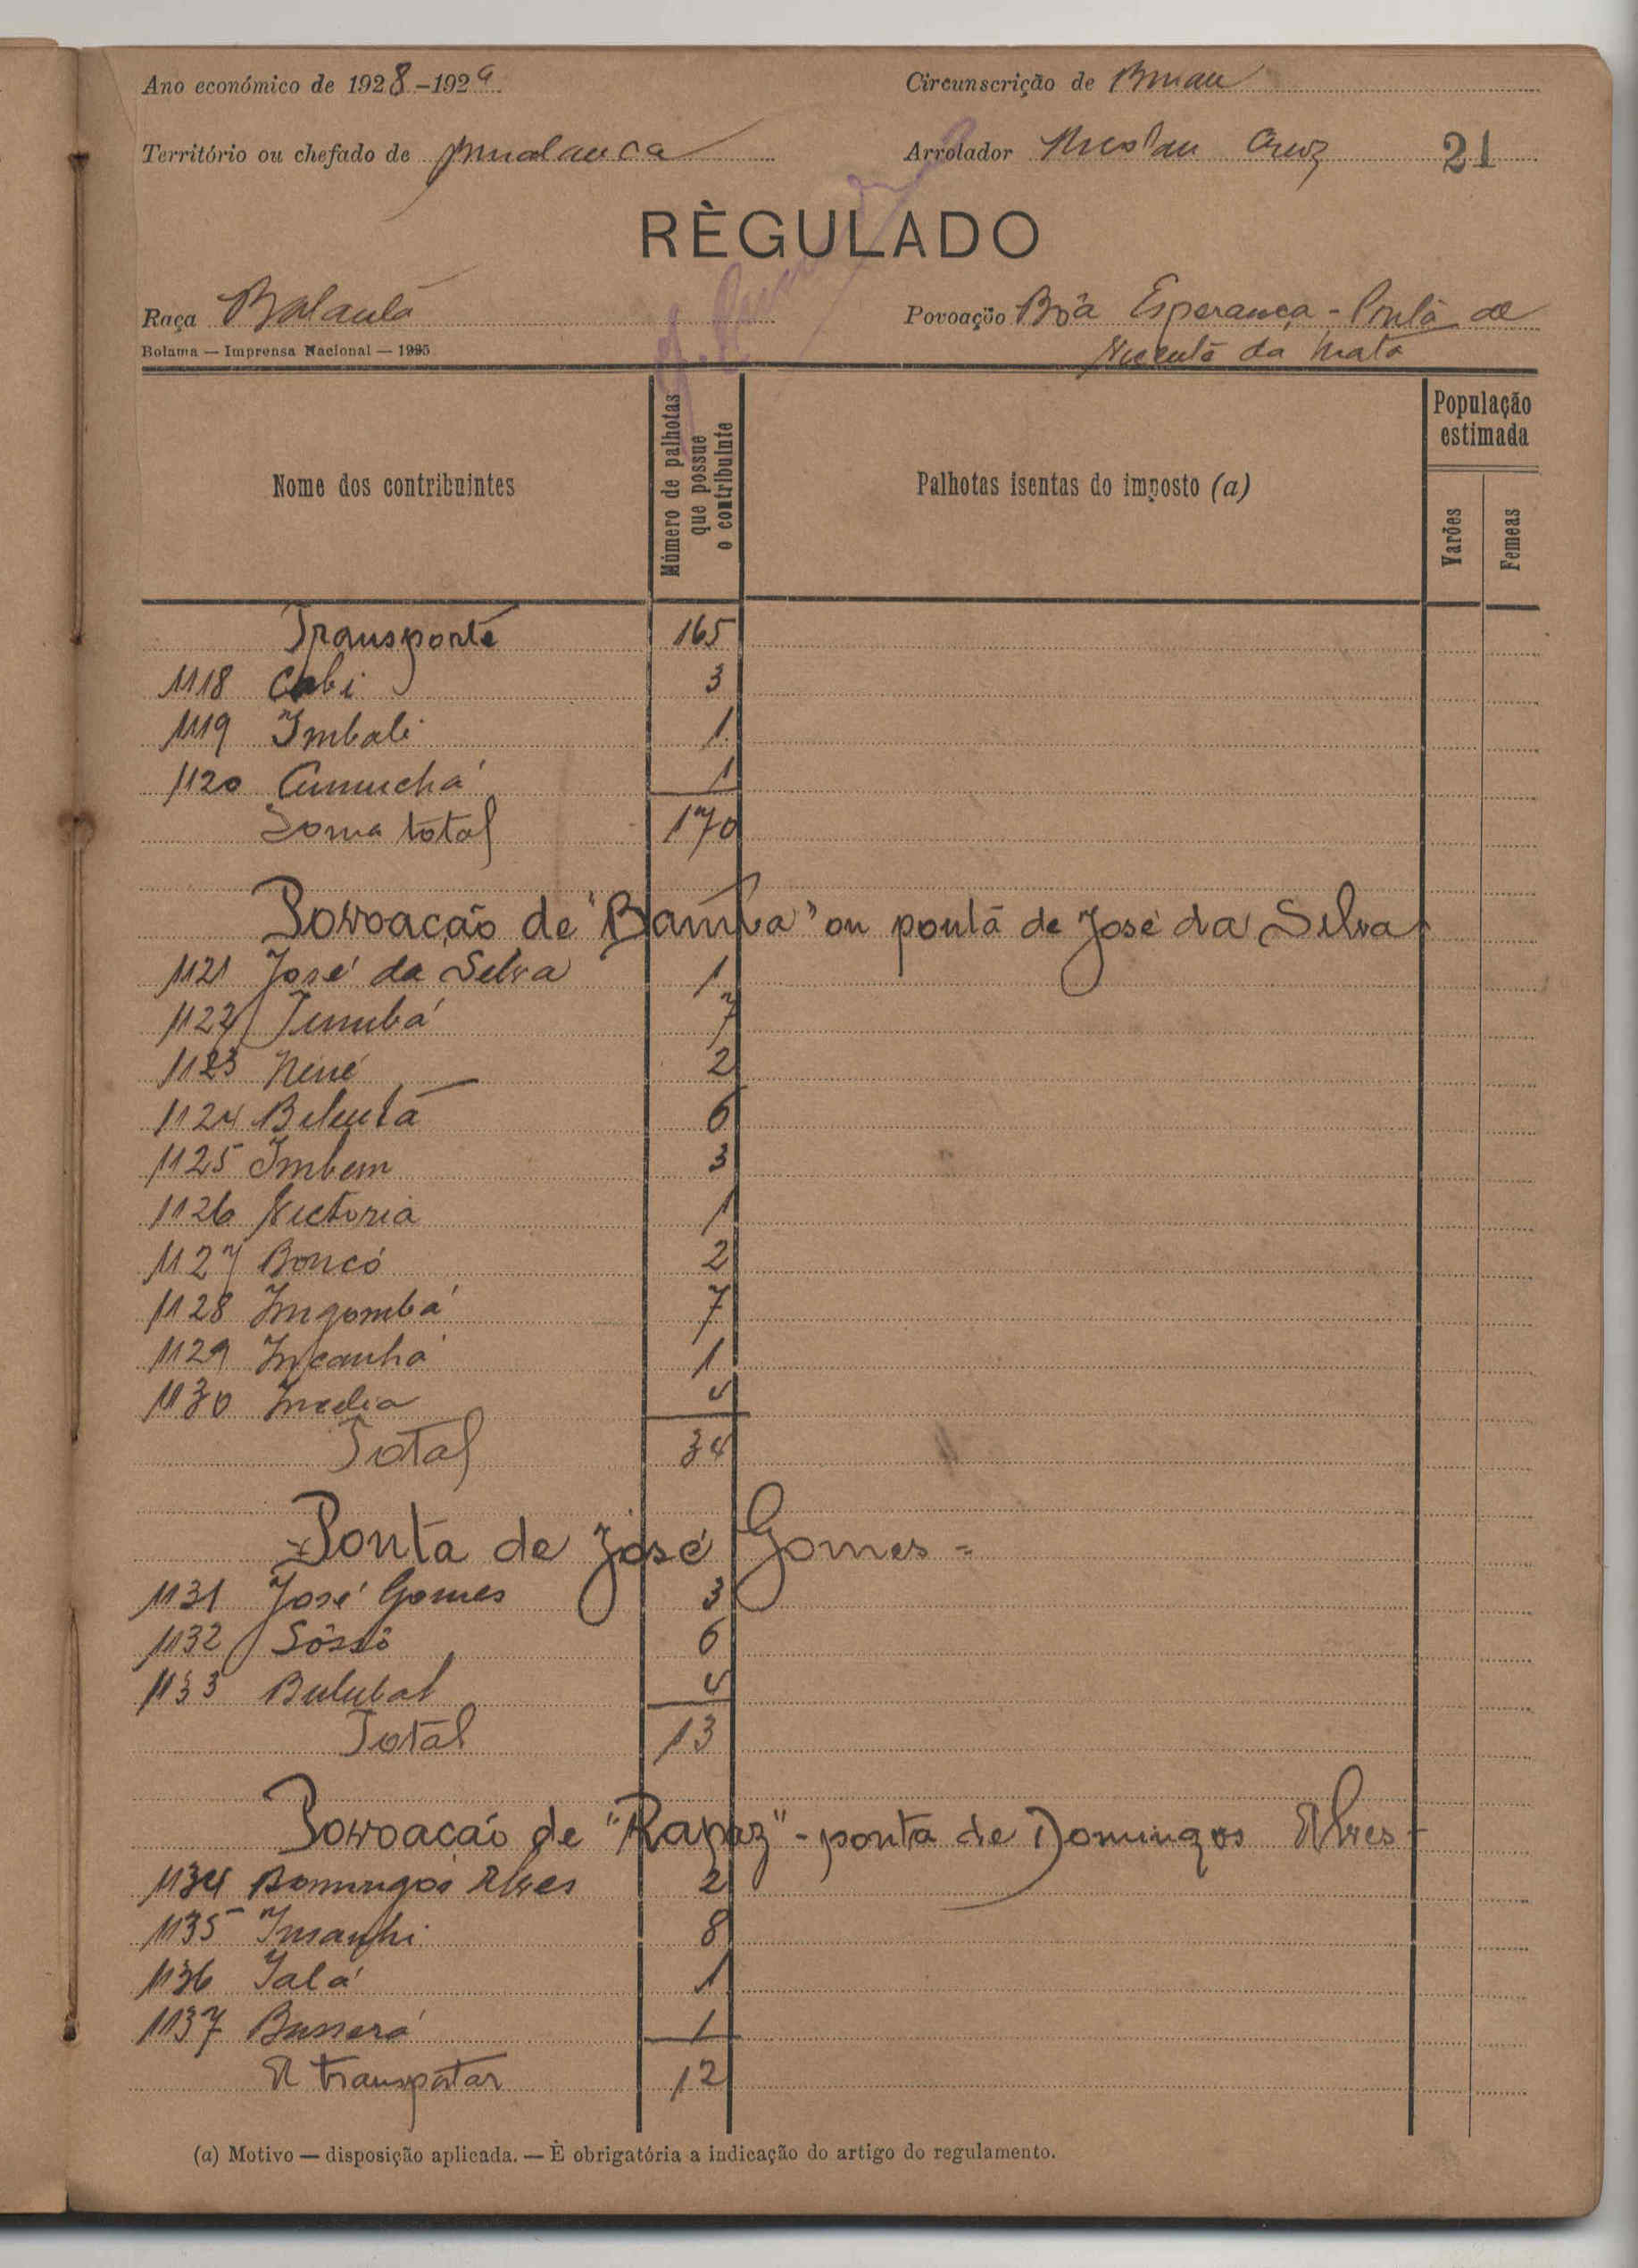 Ano económico de 1928-1929
Circunscrição de
Território ou chefado de
Arrolador Cruz 21
RÈGULADO
Raça Balanta
Povoação Bôa Esperança - Ponta de
Vicente da Mata
Bolama — Imprensa Nacional — 1925
Nome dos contribuintes
Número de palhotas que possue o contribuinte
Palhotas isentas do imposto (a)
População estimada
Varões
Femeas
Transporte 165
1118 Cabi 3
1119 Imbali 1
1120 Cumuchá 1
Soma total 170
Povoação de "Bamba" ou ponta de José da Silva
1121 José da Silva 1
1122 7
1123 Nené 2
1124 6
1125 Imbem 3
1126 Victoria 1
1127 Boncó 2
1128 Ingombá 7
1129 Incanhá 1
1130 4
Total 34
Ponta de José Gomes =
1131 José Gomes 3
1132 Sôssô 6
1133 4
Total 13
Povoação de "Rapaz" - ponta de Domingos Alves
1134 Domingos Alves 2
1135 8
1136 1
1137 1
A transportar 12
(a) Motivo — disposição aplicada. — È obrigatória a indicação do artigo do regulamento.